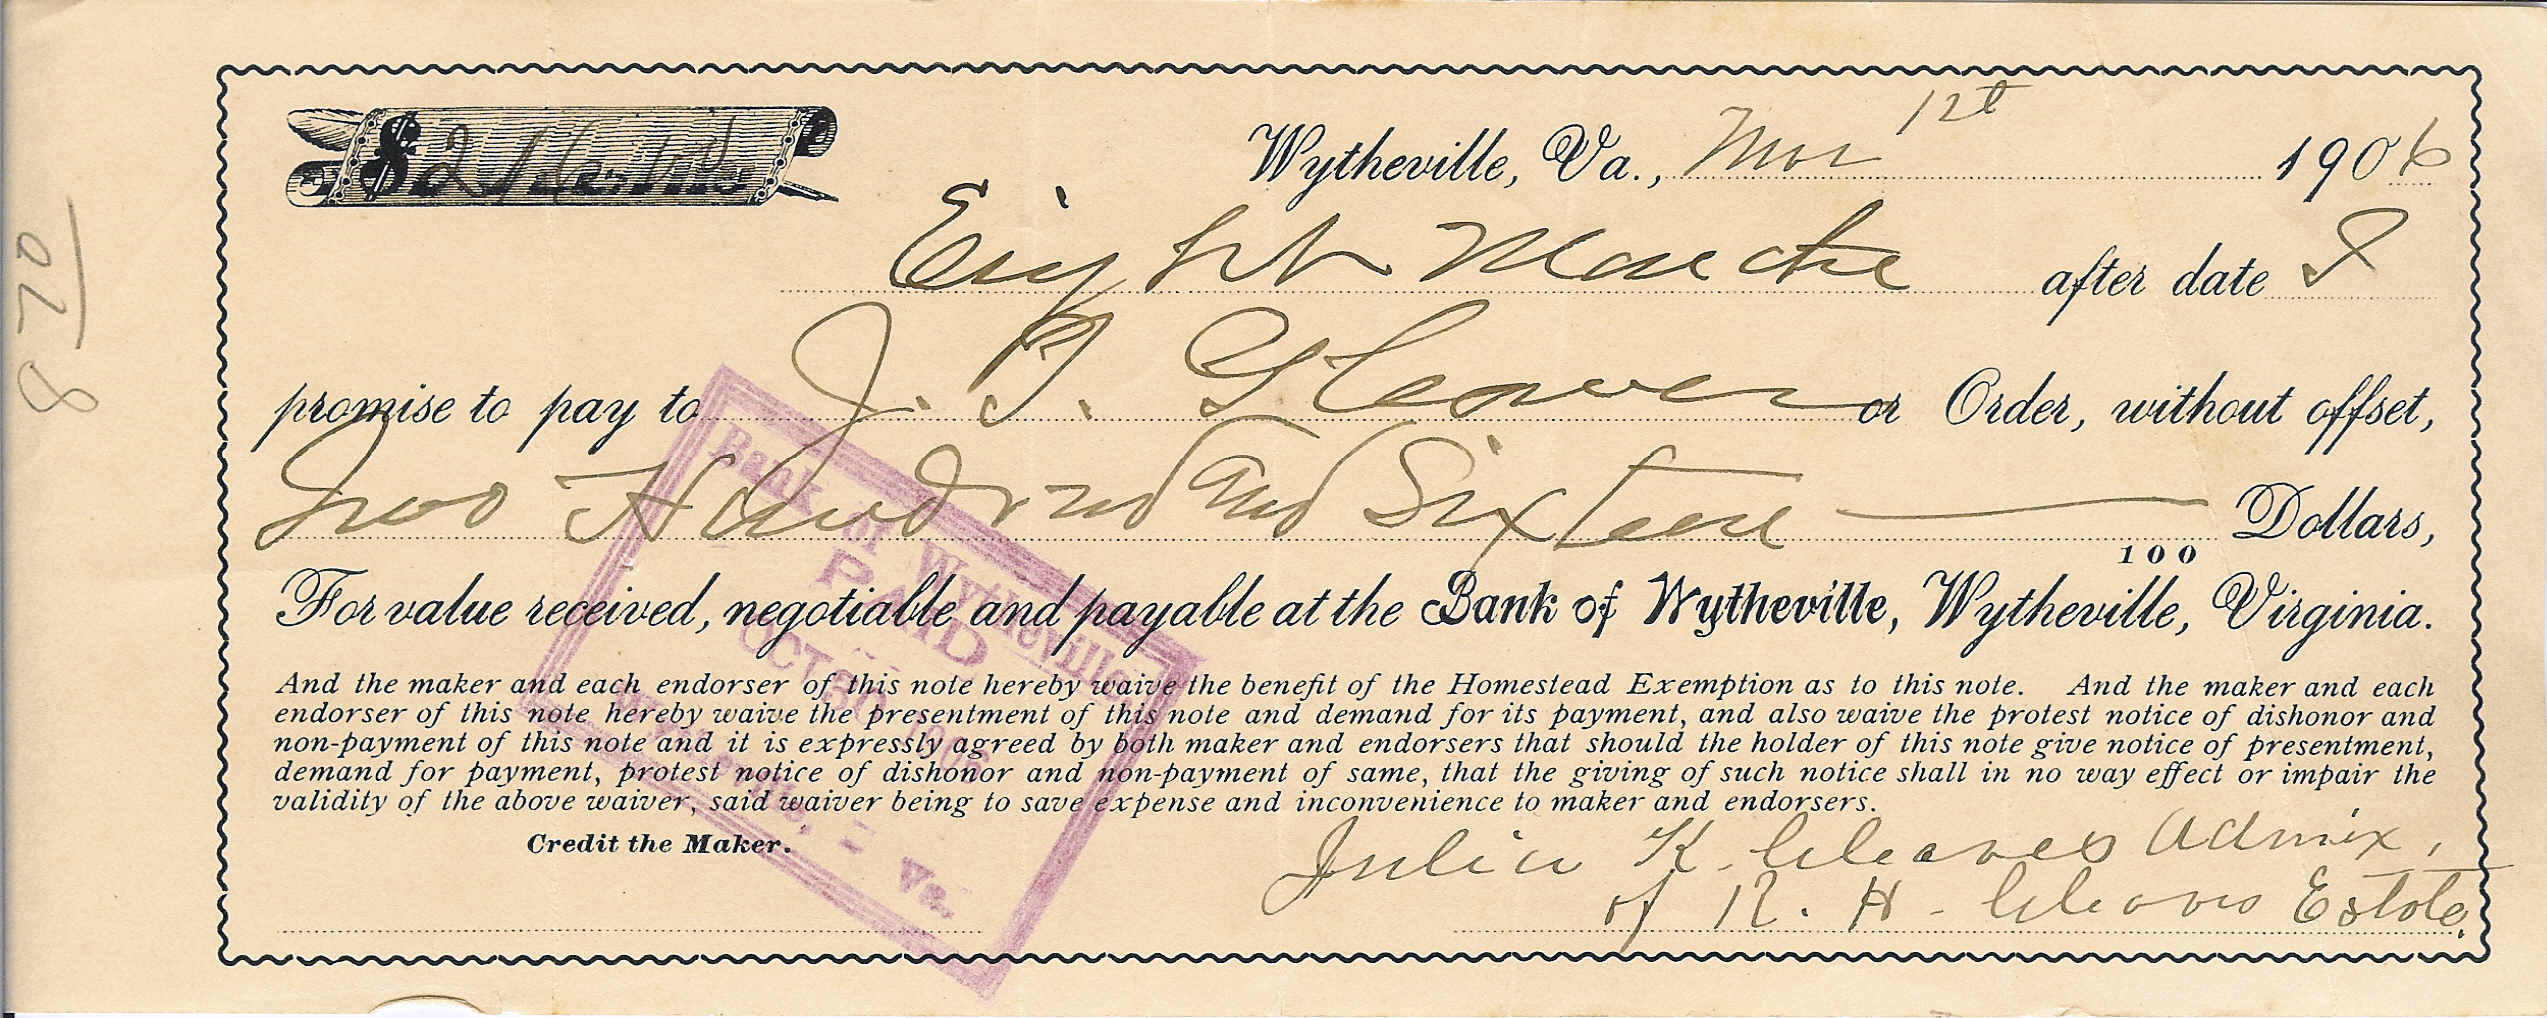 Wytheville, Va., Mar 12t 1906
$216
Eight Months after date I
promise to pay to J. T. Gleaves or Order, without offset,
Two Hundred and Sixteen Dollars,
100
For value received, negotiable and payable at the Bank of Wytheville, Wytheville, Virginia.
And the maker and each endorser of this note hereby waive the benefit of the Homestead Exemption as to this note. And the maker and each
endorser of this note hereby waive the presentment of this note and demand for its payment, and also waive the protest notice of dishonor and
non-payment of this note and it is expressly agreed by both maker and endorsers that should the holder of this note give notice of presentment,
demand for payment, protest notice of dishonor and non-payment of same, that the giving of such notice shall in no way effect or impair the
validity of the above waiver, said waiver being to save expense and inconvenience to maker and endorsers.
Credit the Maker.
Julia K. Gleaves Admix,
of R. H. Gleaves Estate.
Bank of Wytheville
PAID
OCT 30 1906
Wytheville, - Va.
870